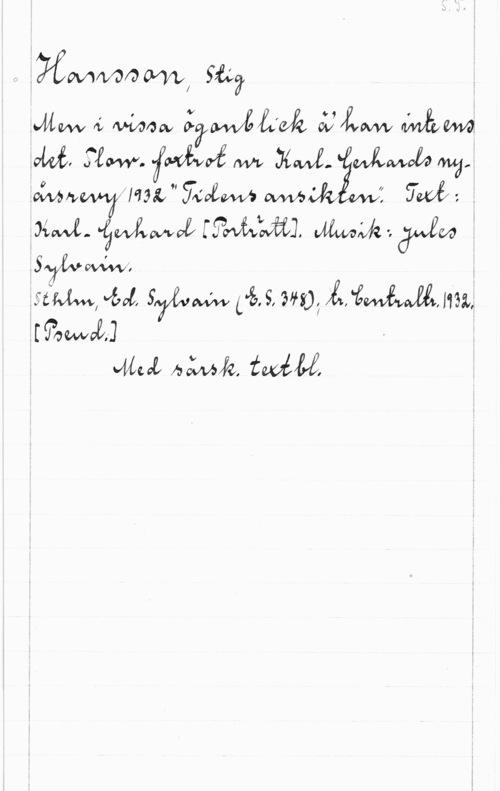 Hansson, Stig
Men i vissa ögonblick ä' han inte ens
det. Slow-foxtrot ur Karl-Gerhards ny-
årsrevy 1932 "Tidens ansikten". Text:
Karl-Gerhard [Porträtt]. Musik: Jules
Sylvain.
Sthlm, Ed. Sylvain (E.S. 348); tr. Centraltr. 1932.
[Pseud.]
Med särsk. textbl.